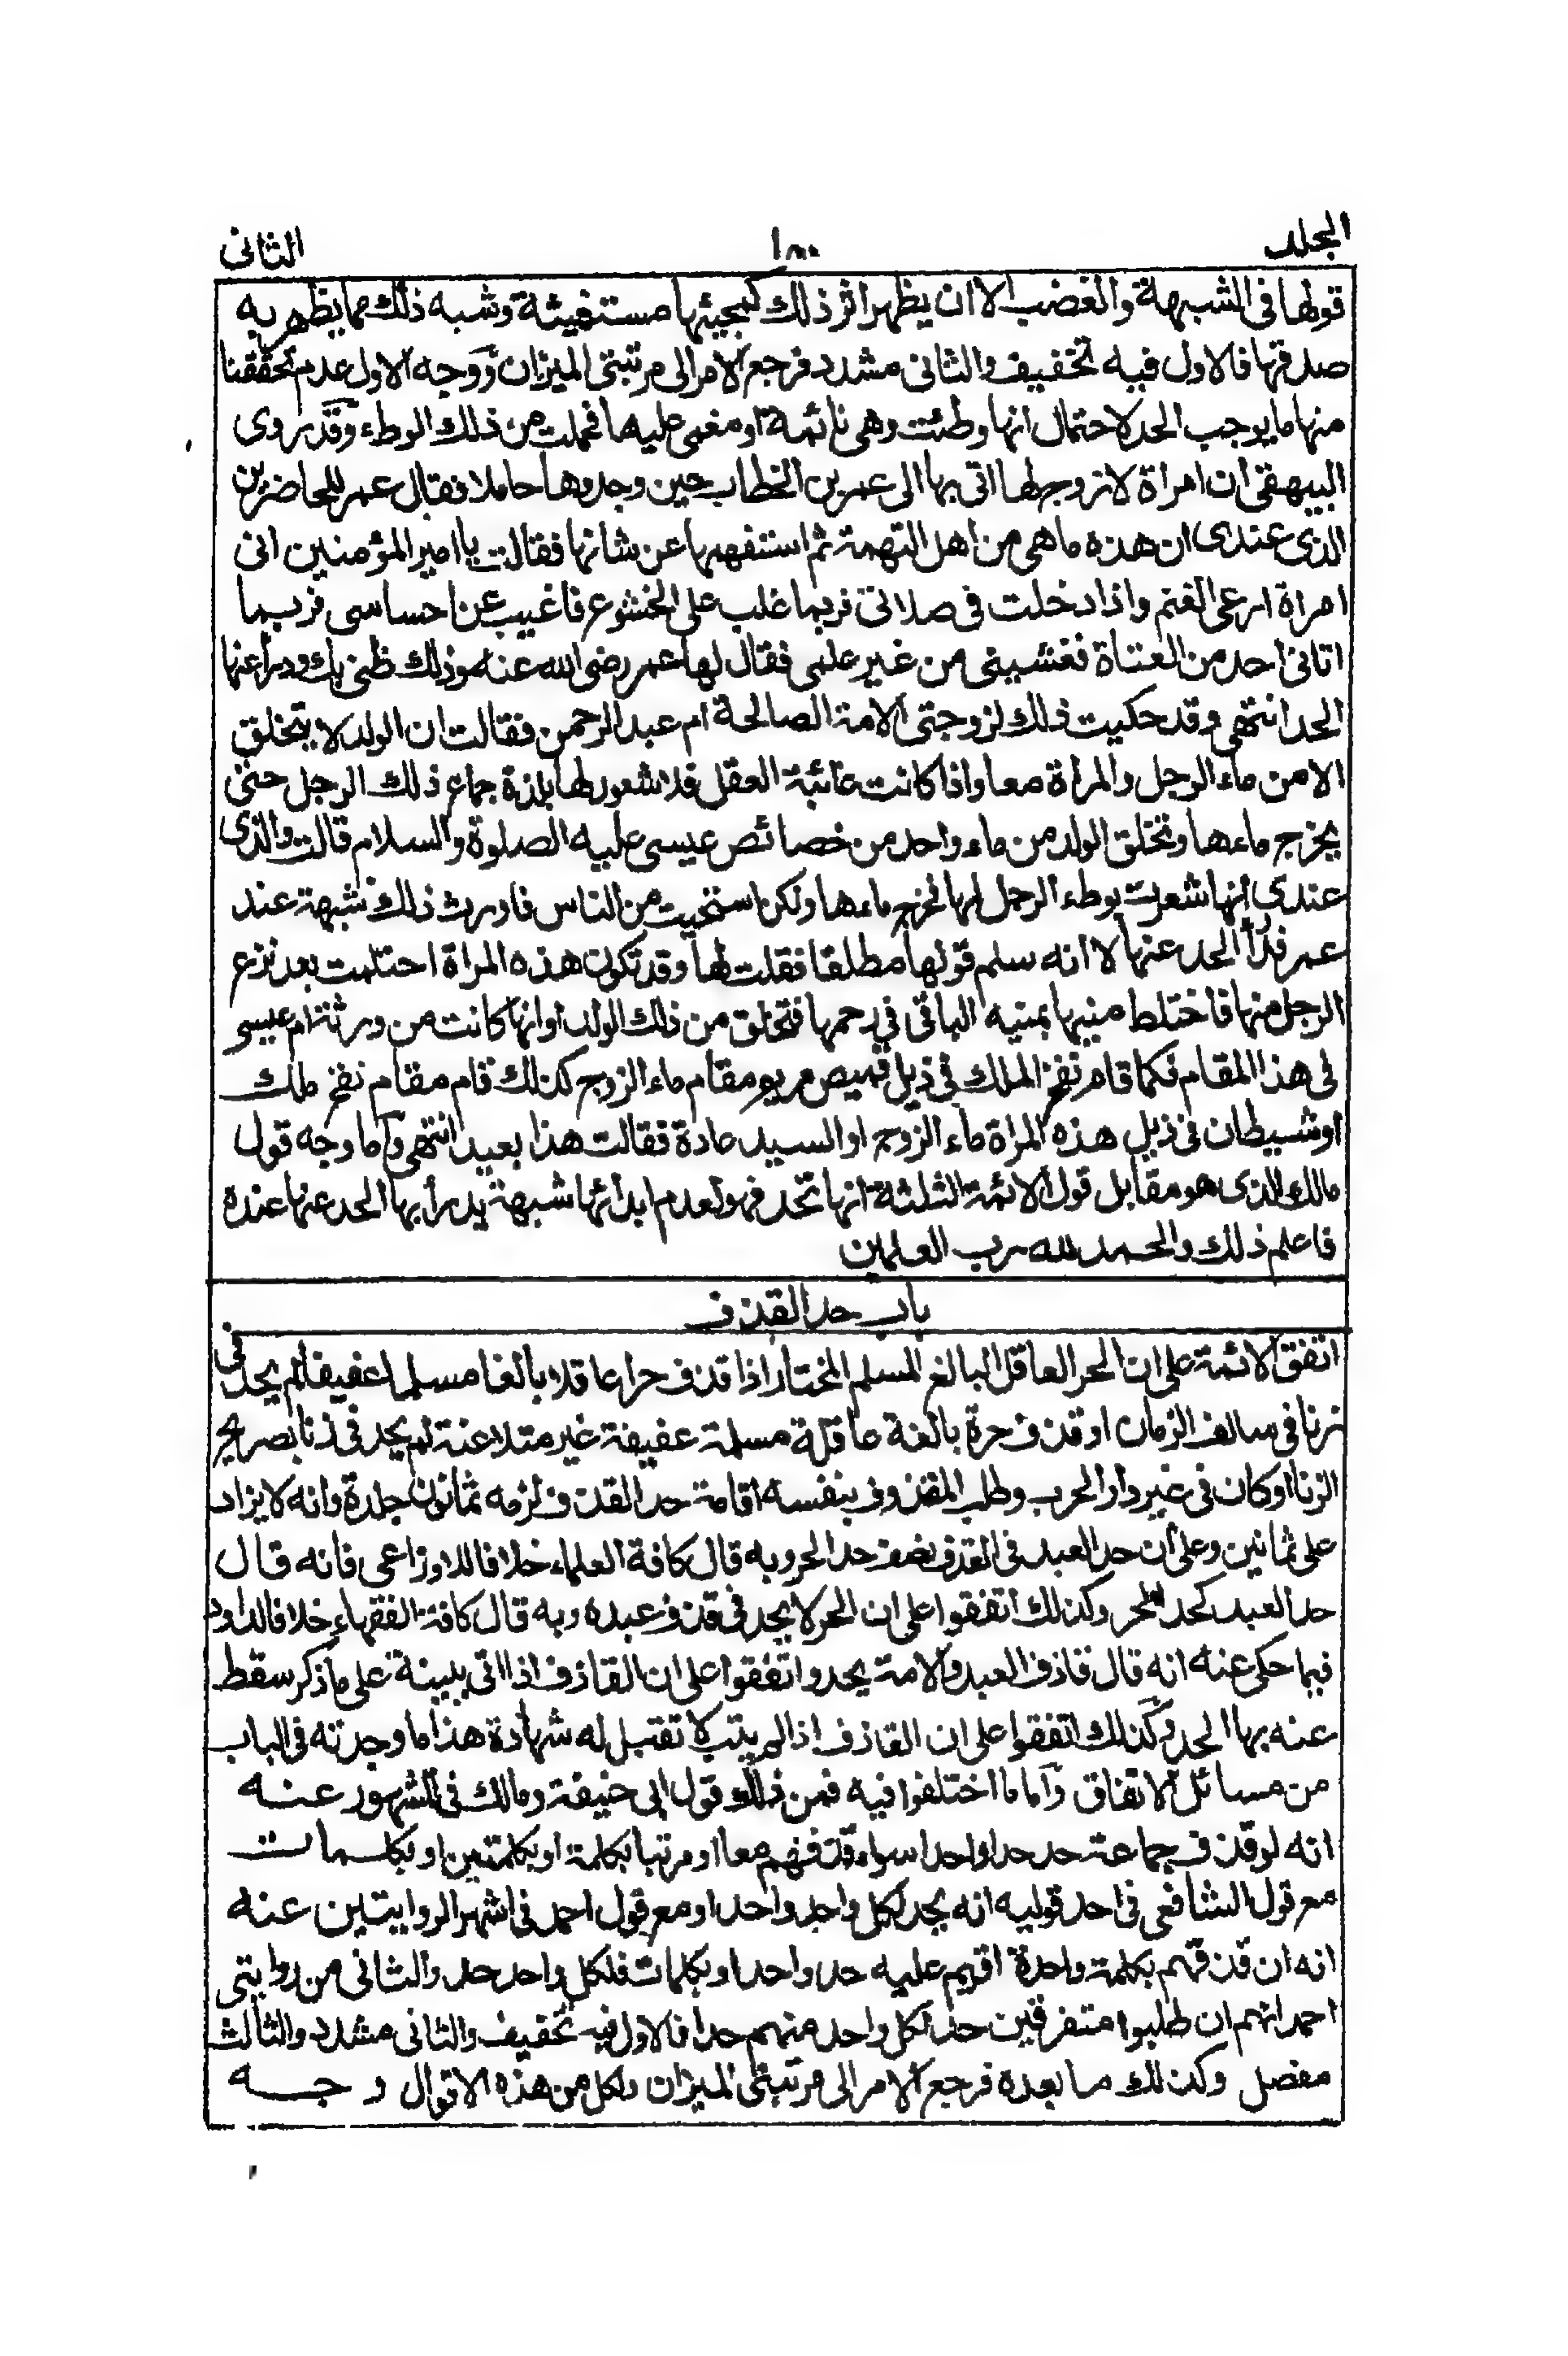 المجلد ١٨٠ الثانى
قولها فى الشبهة والغضب الا ان يظهر اثر ذلك كمجيئها مستغيثة وشبه ذلك مما يظهر به
صدقها فالاول فيه تخفيف والثانى مشدد فرجع الامر الى مرتبتى الميزان ووجه الاول عدم تحققنا
منها ما يوجب الحد لاحتمال انها وطئت وهى نائمة او مغمى عليها فحملت من ذلك الوطء وقد روى
البيهقى ان امراة لا زوج لها اتى بها الى عمر بن الخطاب حين وجدوها حاملا فقال عمر للحاضرين
الذى عندى ان هذه ما هى من اهل التهمة ثم استفهمها عن شانها فقالت يا امير المؤمنين انى
امراة ارعى الغنم واذا دخلت فى صلاتى فربما غلب على الخشوع فاغيب عن احساسى فربما
اتانى احد من العتاة فغشينى من غير علمى فقال لها عمر رضى الله عنه وذلك ظنى بك ودرأ عنها
الحد انتهى وقد حكيت ذلك لزوجتى الامة الصالحة ام عبد الرحمن فقالت ان الولد لا يتخلق
الا من ماء الرجل والمراة معا واذا كانت غائبة العقل فلا شعور لها بلذة جماع ذلك الرجل حتى
يخرج ماءها وتخلق الولد من ماء واحد من خصائص عيسى عليه الصلوة والسلام قالت والذى
عندى انها شعرت بوطء الرجل لها فخرج ماءها ولكن استحيت من الناس فاورث ذلك شبهة عند
عمر فدرأ الحد عنها لا انه سلم قولها مطلقا فقلت لها وقد تكون هذه المراة احتلمت بعد نزع
الرجل منها فاختلط منيها بمنيه الباقى فى رحمها فتخلق من ذلك الولد او انها كانت من ورثة ام عيسى
فى هذا المقام فكما قام نفخ الملك فى ذيل قميص مريم مقام ماء الزوج كذلك قام مقام نفخ ملك
او شيطان فى ذيل هذه المراة ماء الزوج او السيد عادة فقالت هذا بعيد انتهى واما وجه قول
مالك الذى هو مقابل قول الائمة الثلثة انها تحد فهو لعدم ابدائها شبهة يدرأ بها الحد عنها عنده
فاعلم ذلك والحمد لله رب العلمين
باب حد القذف
اتفق الائمة على ان الحر العاقل البالغ المسلم المختار اذا قذف حرا عاقلا بالغا مسلما عفيفا لم يحد فى
زنا فى سالف الزمان او قذف حرة بالغة عاقلة مسلمة عفيفة غير متلاعنة لم يحد فى زنا بصريح
الزنا او كان فى غير دار الحرب وطلب المقذوف بنفسه اقامة حد القذف لزمه ثمانون جلدة وانه لا يزاد
على ثمانين وعلى ان حد العبد فى القذف نصف حد الحر وبه قال كافة العلماء خلافا للاوزاعى فانه قال
حد العبد كحد الحر وكذلك اتفقوا على ان الحر لا يحد فى قذف عبده وبه قال كافة الفقهاء خلافا لداود
فيما حكى عنه انه قال قاذف العبد والامة يحد واتفقوا على ان القاذف اذا اتى ببينة على ما ذكر سقط
عنه بها الحد وكذلك اتفقوا على ان القاذف اذا لم يتب لا تقبل له شهادة هذا ما وجدته فى الباب
من مسائل الاتفاق واما ما اختلفوا فيه فمن ذلك قول ابى حنيفة ومالك فى المشهور عنه
انه لو قذف جماعة حد حدا واحدا سواء قذفهم معا او مرتبا بكلمة او بكلمتين او بكلمات
مع قول الشافعى فى احد قوليه انه يحد لكل واحد واحدا ومع قول احمد فى اشهر الروايتين عنه
انه ان قذفهم بكلمة واحدة اقيم عليه حد واحد او بكلمات فلكل واحد حد والثانى من روايتى
احمد انهم ان طلبوا متفرقين حد لكل واحد منهم حدا فالاول فيه تخفيف والثانى مشدد والثالث
مفصل وكذلك ما بعده فرجع الامر الى مرتبتى الميزان ولكل من هذه الاقوال وجه